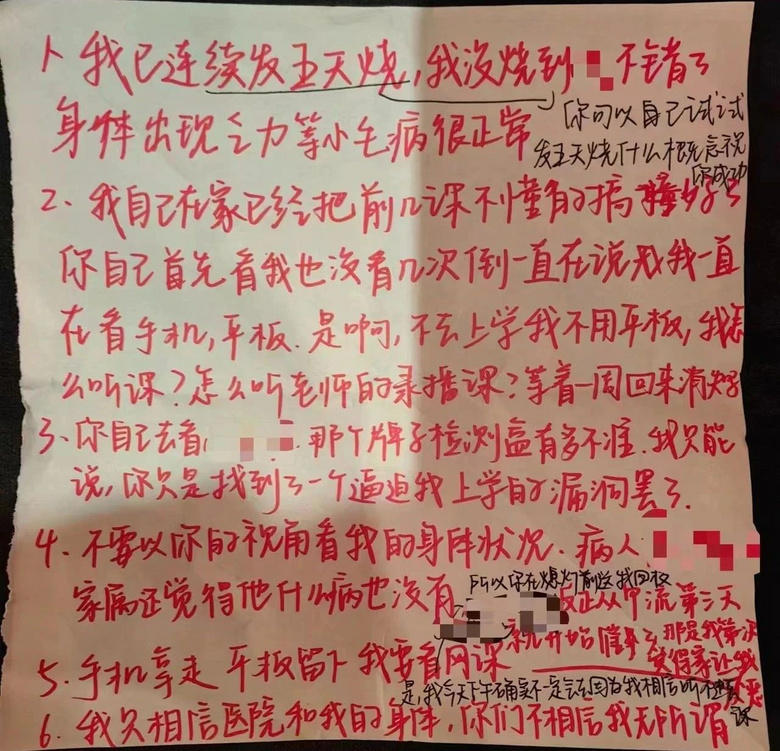 1、我已连续发五天烧,我没烧到 不错了
身体出现乏力等小毛病很正常
你可以自己试试
发五天烧什么概念祝
你成功
2、我自己在家已经把前几课不懂的搞懂
你自己首先看我也没看几次倒一直在说我一直
在看手机,平板.是啊,不去上学我不用平板,我怎
么听课?怎么听老师的录播课?等着一周回来
3、你自己去看, 那个牌子检测盒有多不准.我只能
说,你只是找到了一个逼迫我上学的漏洞罢了.
4、不要以你的视角看我的身体状况、病人
家属还觉得他什么病也没有
所以你在熄灯前
从甲流第三天
就开始 那是我第一次
觉得家让我
5、手机拿走 平板留下 我要看网课
是,我今天下午确实不是 因为我相信
课
6、我只相信医院和我的身体,你们不相信我无所谓